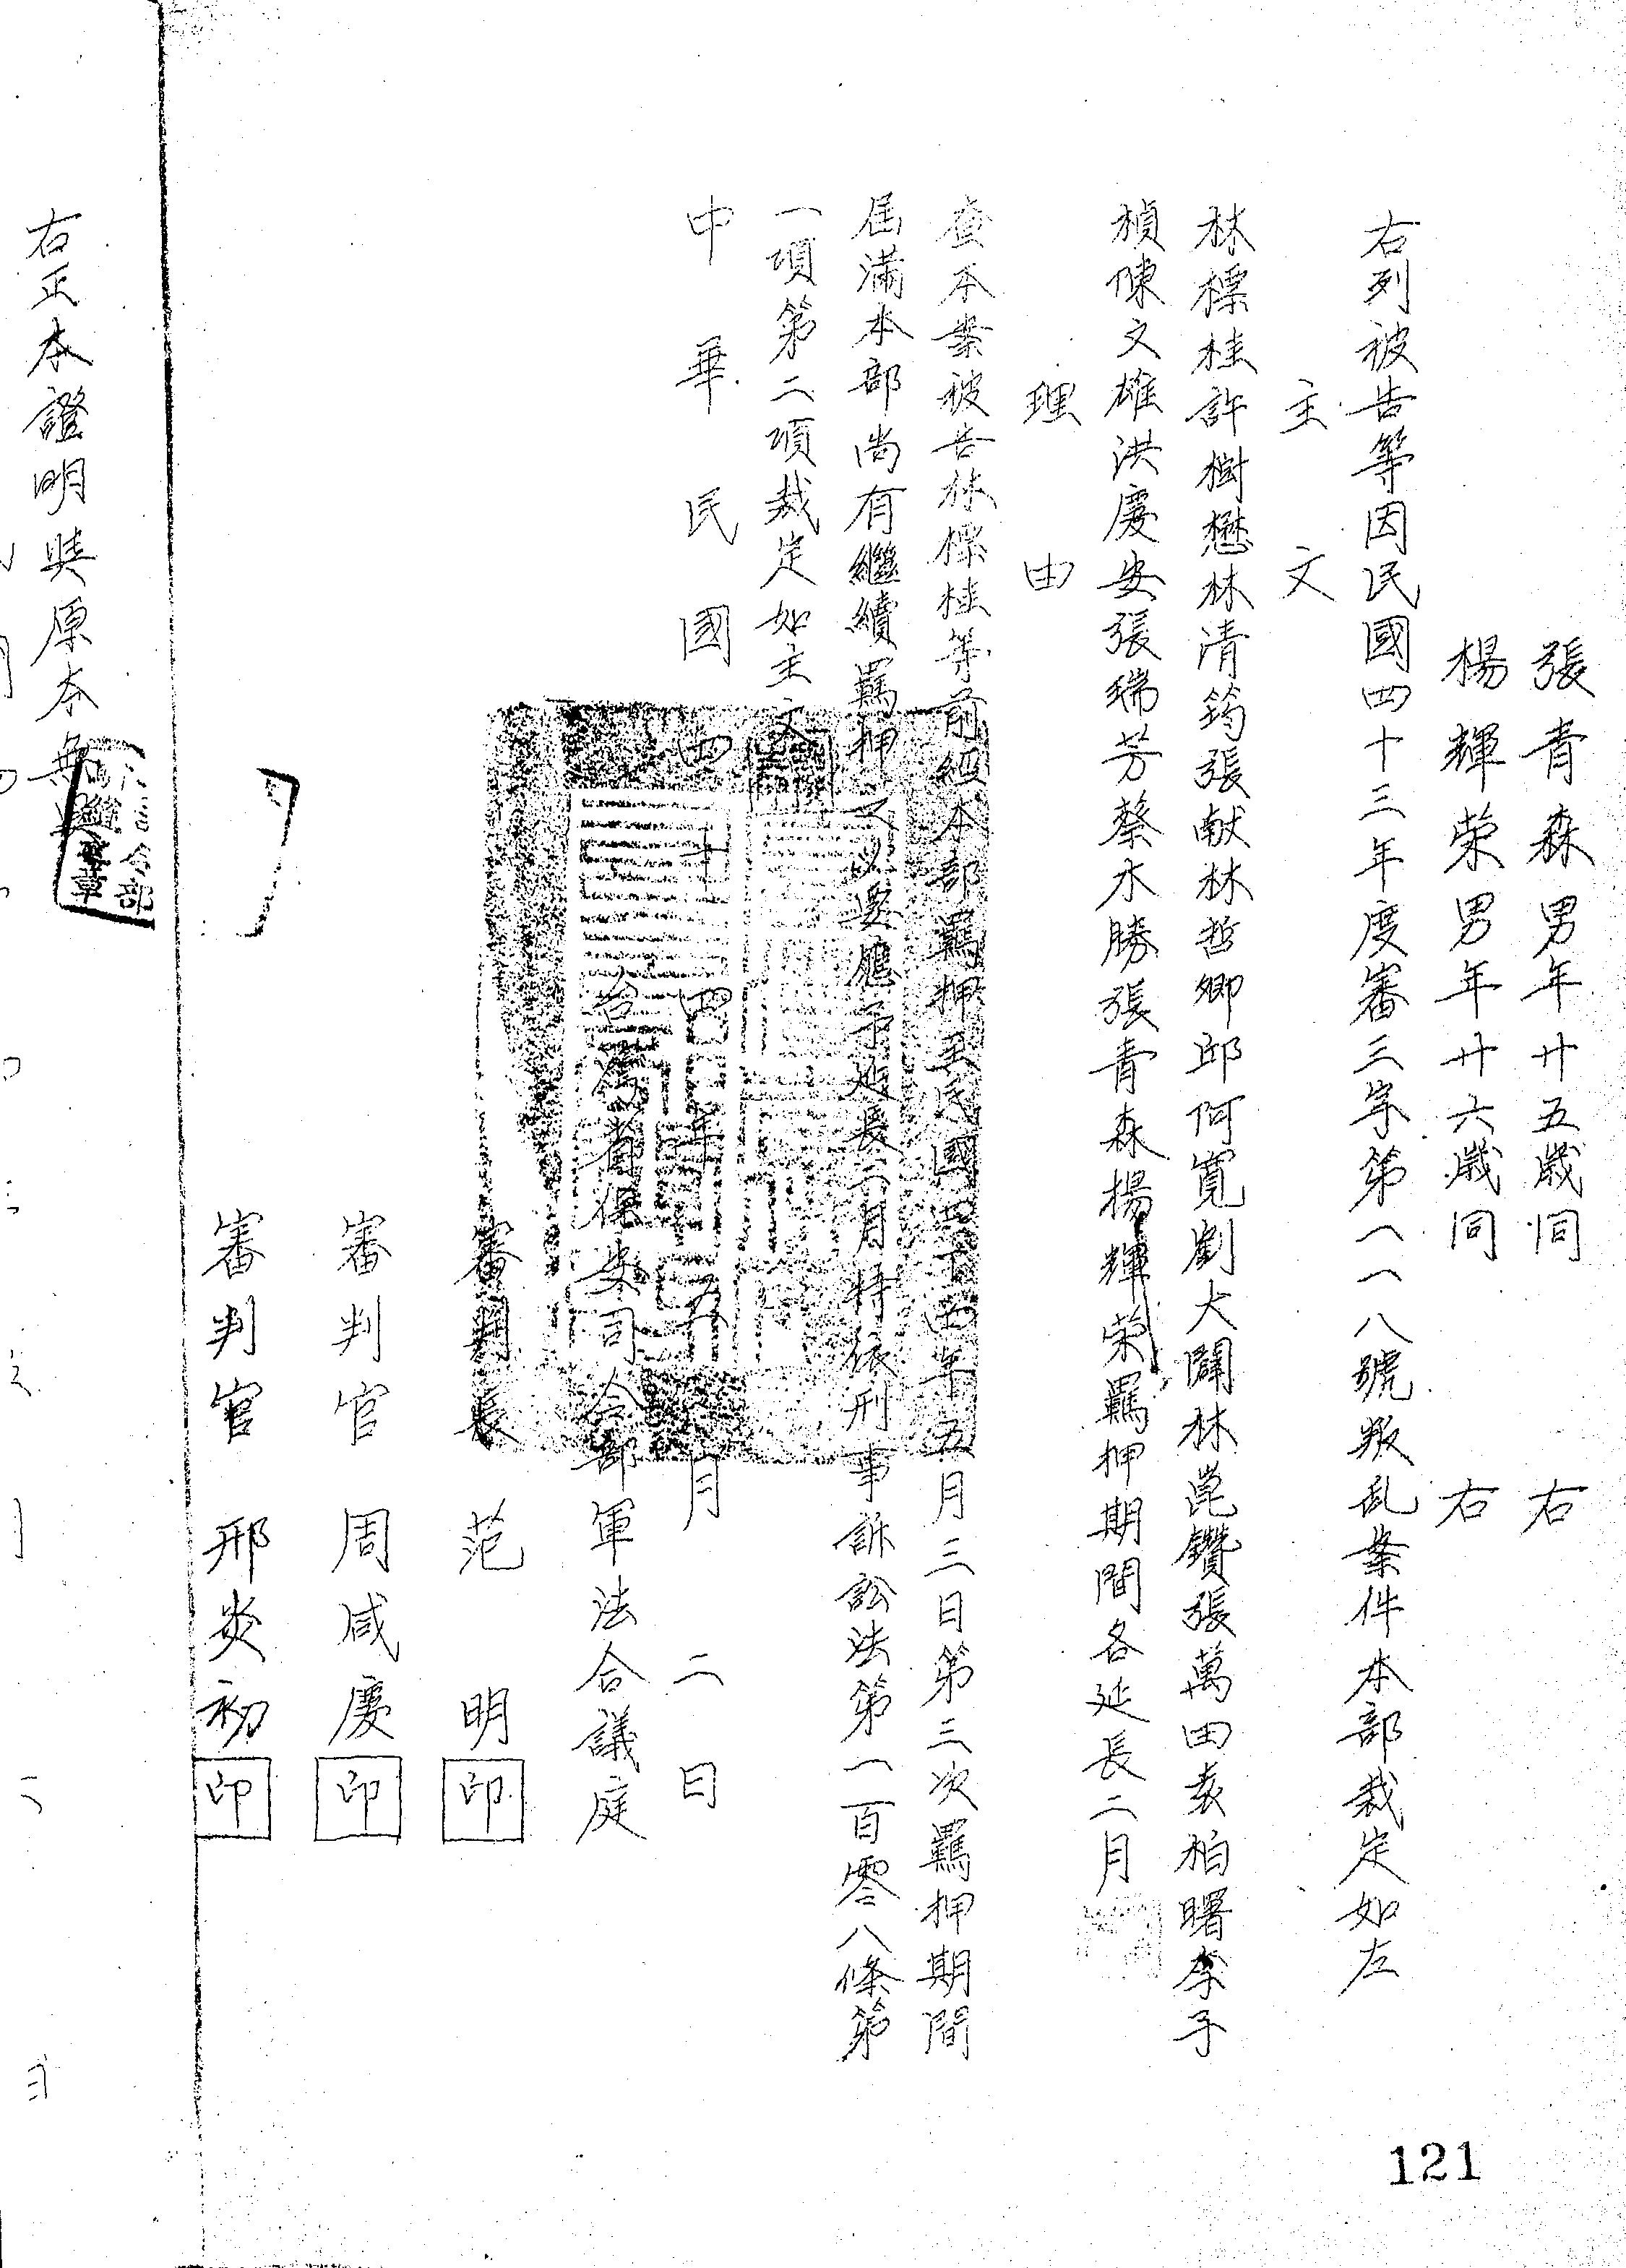 張青森男年廿五歲同右
楊輝榮男年廿六歲同右
右列被告等因民國四十三年度審三字第一一八號叛乱案件本部裁定如左
主文
林標桂許樹懋林清筠張献林哲卿邱阿寬劉大闢林崑鑽張萬田袁柏曙李子
楨陳文雄洪慶安張瑞芳蔡水勝張青森楊輝荣羈押期間各延長二月
理由
查本案被告林標桂等前經本部羈押至民國四十四年五月三日第三次羈押期間
屆滿本部尚有繼續羈押之必要應予延長二月特依刑事訴訟法第一百零八條第
一項第二項裁定如主文
中華民國四十四年五月二日
台灣省保安司令部軍法合議庭
審判長范明印
審判官周咸慶印
審判官邢炎初印
右正本證明與原本無異
121